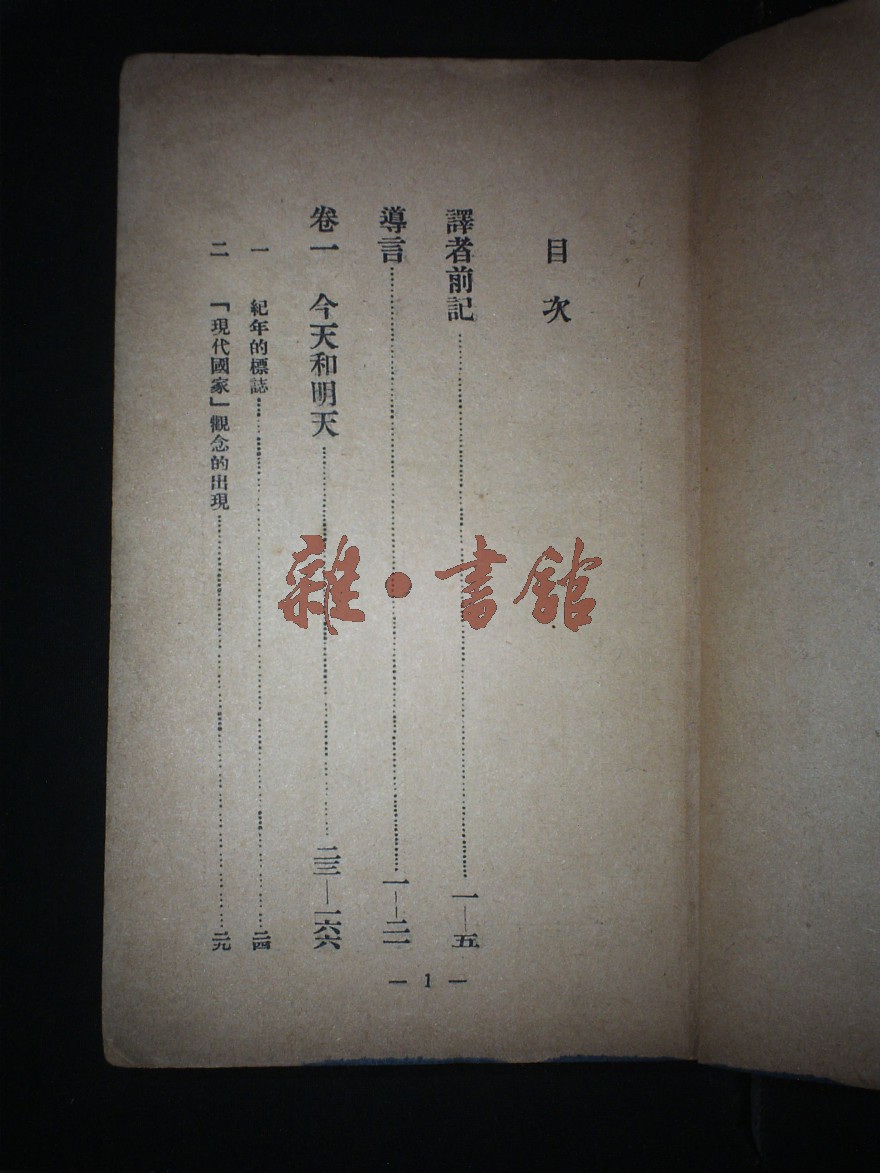 目次
譯者前記 一—五
導言 一—二一
卷一 今天和明天 二三—一六六
一 紀年的標誌 二四
二 「現代國家」觀念的出現 二九
— 1 —
雜·書館